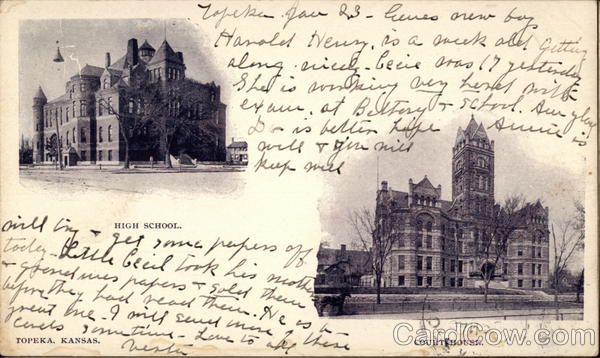 Topeka Jan 23 - Genes new boy
Harold Henry, is a week old Getting
along nicely Cecie was 17 yesterday
She is working very hard with
exam. at Bethany + School. Am glad
D is better hope Annie is
well & you will
keep well
HIGH SCHOOL.
will try - get some papers off
today - Little Cecil took his mothers
+ Grandmas papers + sold them
before they had read them. He is a
great one. I will send more of these
cards sometime. Love to all
TOPEKA, KANSAS.
COURTHOUSE.
CardCow.com